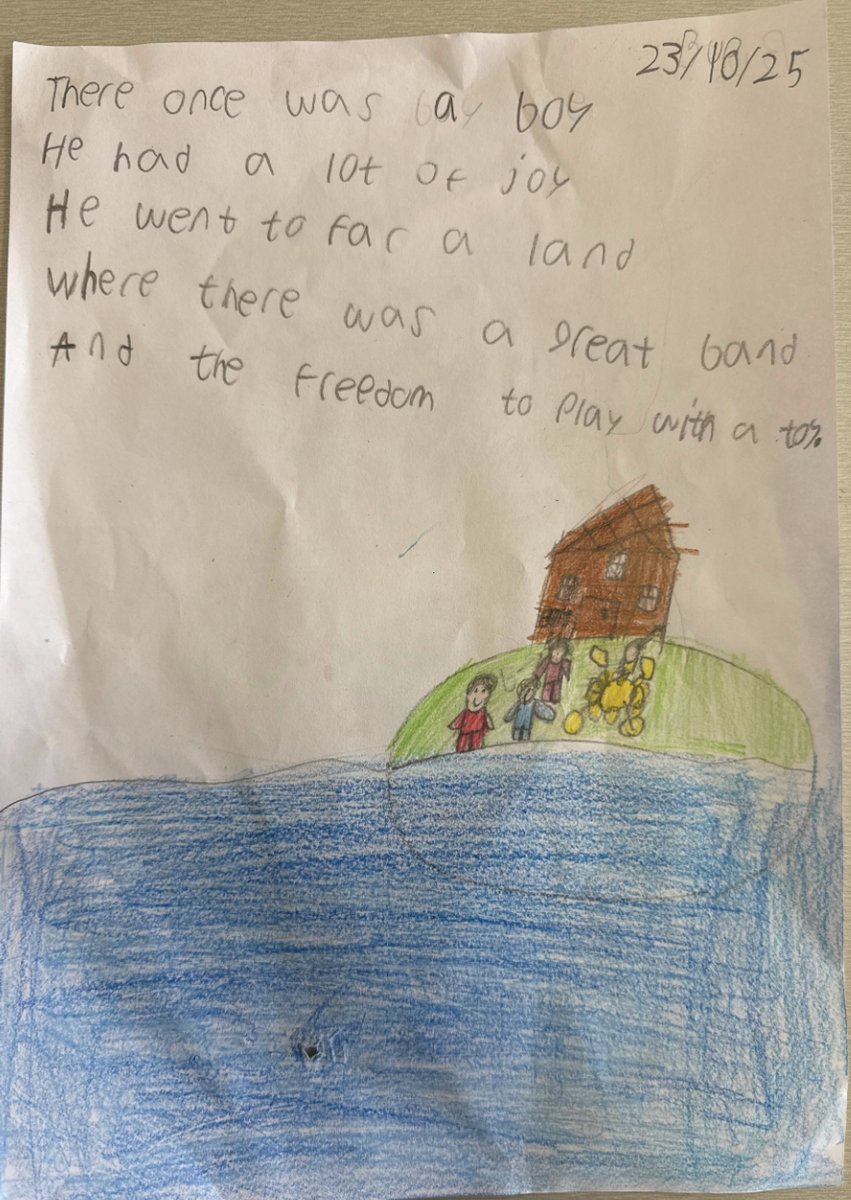 There once was a boy
He had a lot of joy
He went to far a land
where there was a great band
And the freedom to play with a toy.